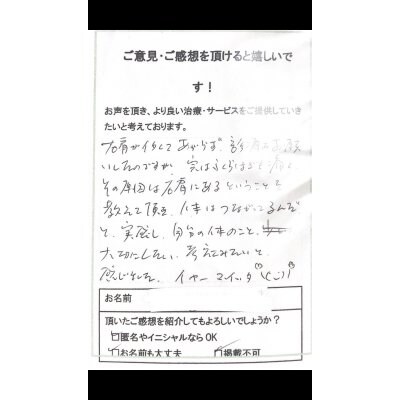 ご意見・ご感想を頂けると嬉しいで
す！
お声を頂き、より良い治療・サービスをご提供していき
たいと考えております。
右肩がイタくて あがらず、診
いしたのですが、実はふくらはぎと
その原因は右肩にあるということを
教えて頂き、人体はつながってるんだ
と、実感し、自分の体のこと、
大切にしたい、考えてみたいと
感じました。イヤーマイッタ
お名前
頂いたご感想を紹介してもよろしいでしょうか？
□匿名やイニシャルなら OK
□お名前も大丈夫 □掲載不可